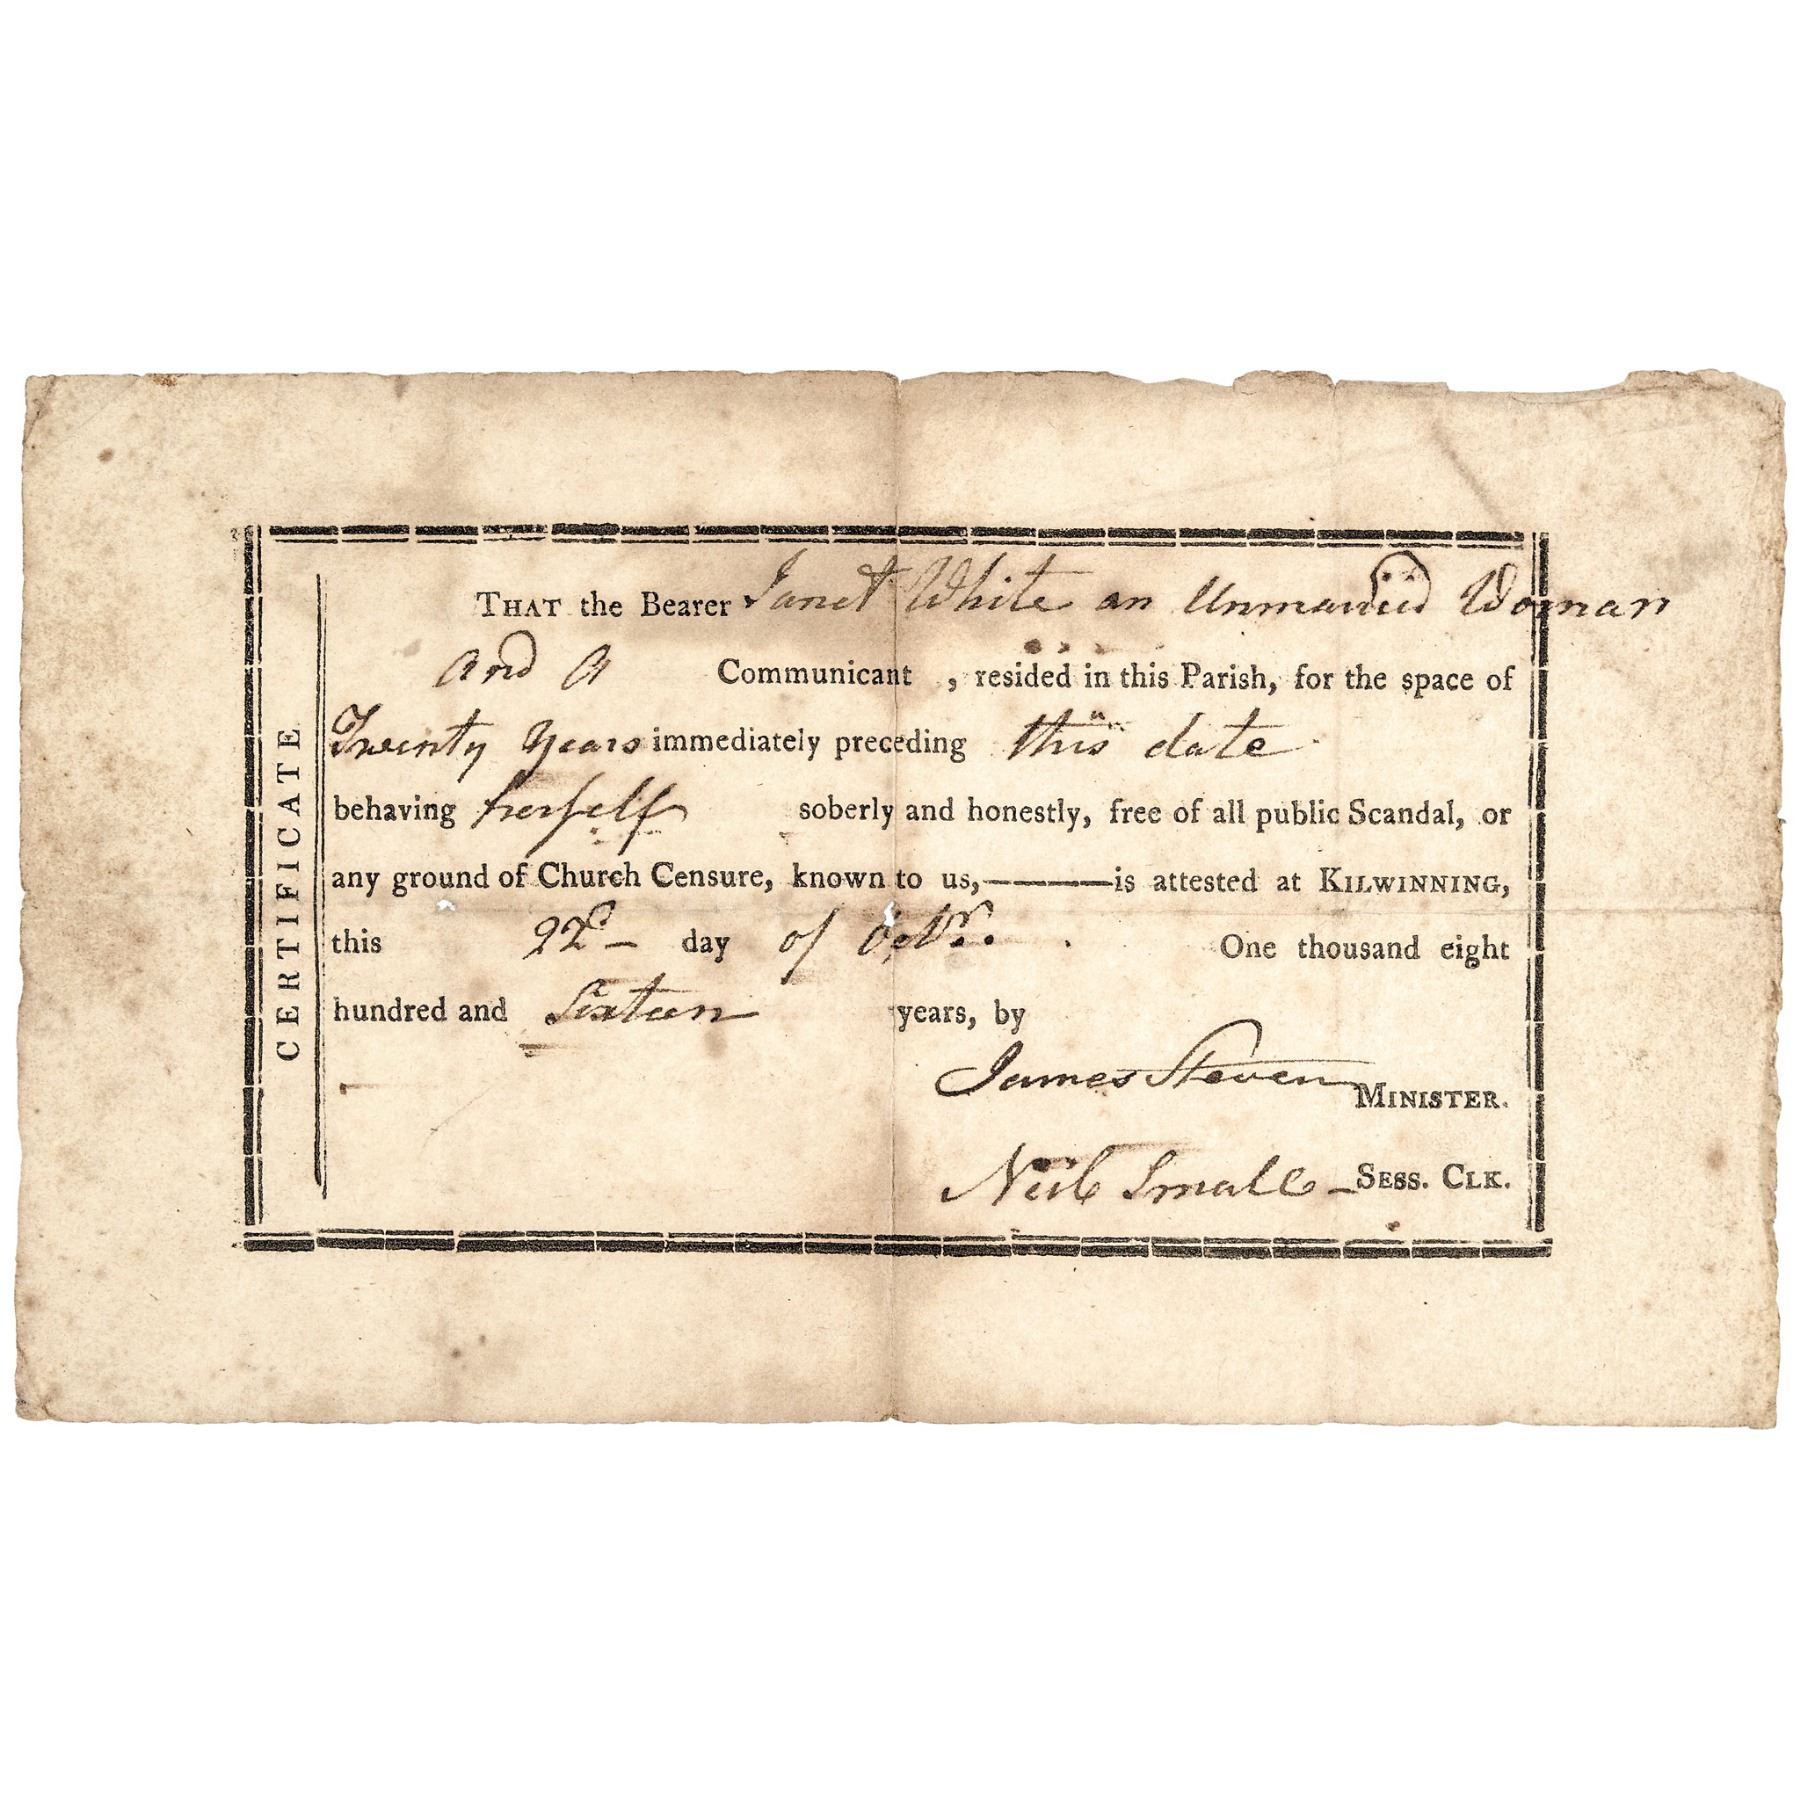 CERTIFICATE
THAT the Bearer Janet White an Unmarried Woman
and a Communicant , resided in this Parish, for the space of
Twenty Years immediately preceding this date
behaving herself soberly and honestly, free of all public Scandal, or
any ground of Church Censure, known to us,———is attested at KILWINNING,
this 22d — day of Octr. One thousand eight
hundred and Sixteen years, by
James Steven MINISTER.
Neil Small — SESS. CLK.